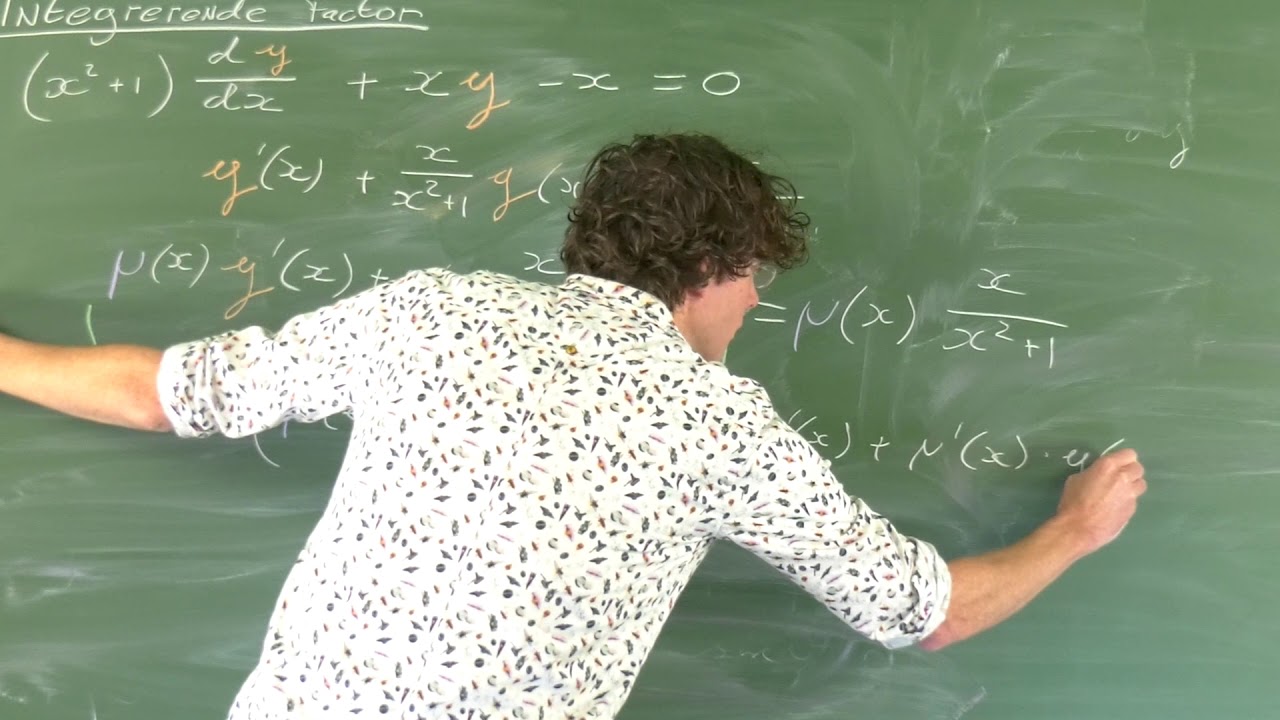 Integrerende factor
(x²+1) dy/dx + xy - x = 0
y'(x) + x/(x²+1) y(x
μ(x) y'(x) + x = μ(x) x/(x²+1)
(μ( '(x) + μ'(x) · y(